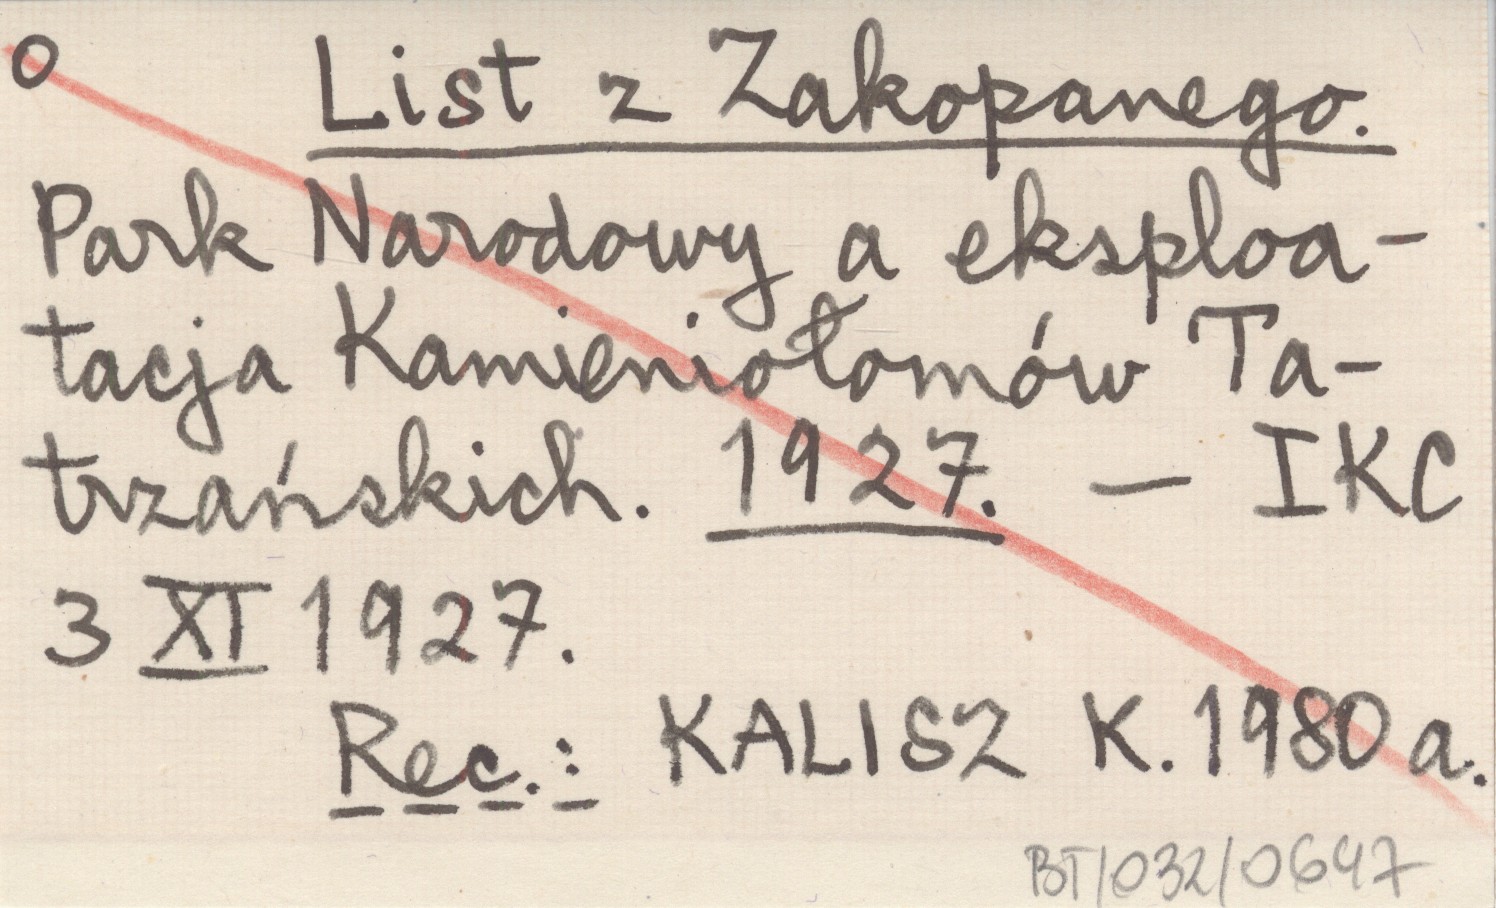 o List z Zakopanego.
Park Narodowy a eksploa-
tacja Kamieniołomów Ta-
trzańskich. 1927. — IKC
3 XI 1927.
Rec.: KALISZ K. 1980 a.
BT/032/0647